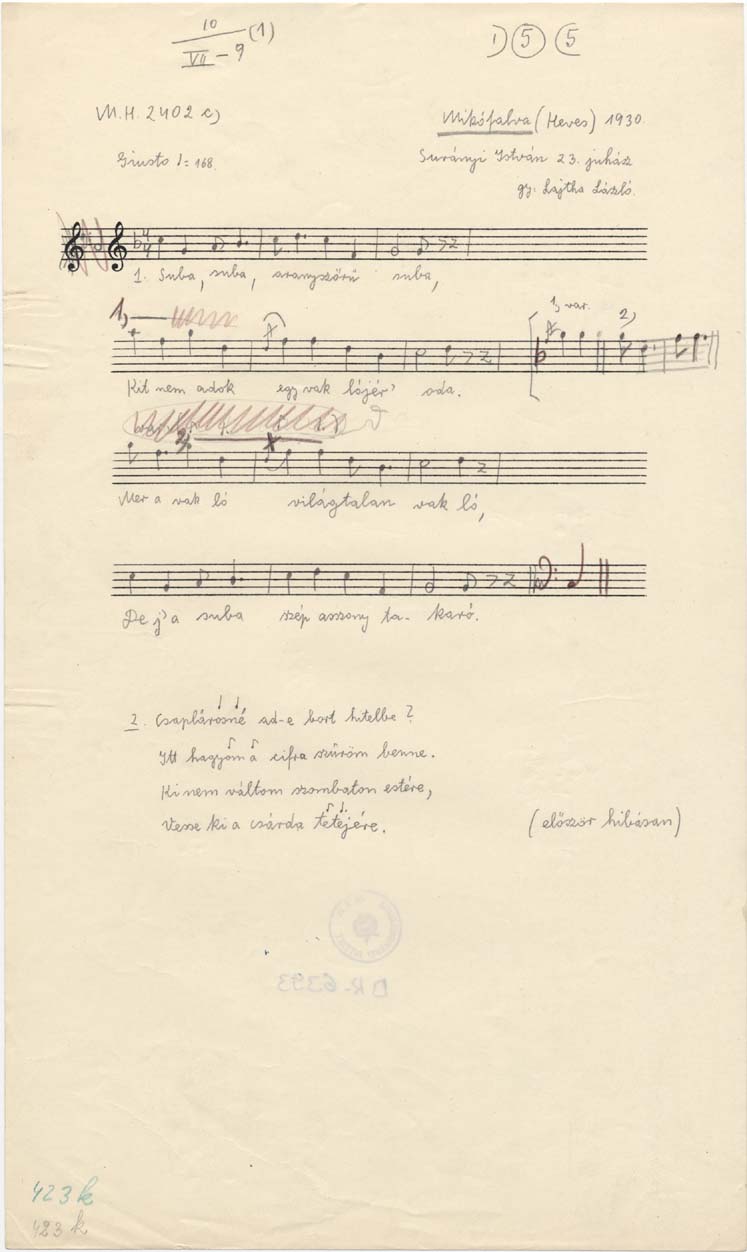 10 (1)
VII - 9
1) 5 5
M.H. 2402 c)
Mikófalva (Heves) 1930.
Giusto ♩= 168.
Surányi István 23. juhász
gy. Lajtha László.
1. Suba, suba, aranyszőrű suba,
1,
1, var. 2,
Kit nem adok egy vak lójér' oda.
2.
Mer a vak ló világtalan vak ló,
De j'a suba szép asszony ta- karó.
2. Csaplárosné ad-e bort hitelbe?
Itt hagyom a cifra szűröm benne.
Ki nem váltom szombaton estére,
Vesse ki a csárda tetejére.
(először hibásan)
DR-6393
423 k
483 k